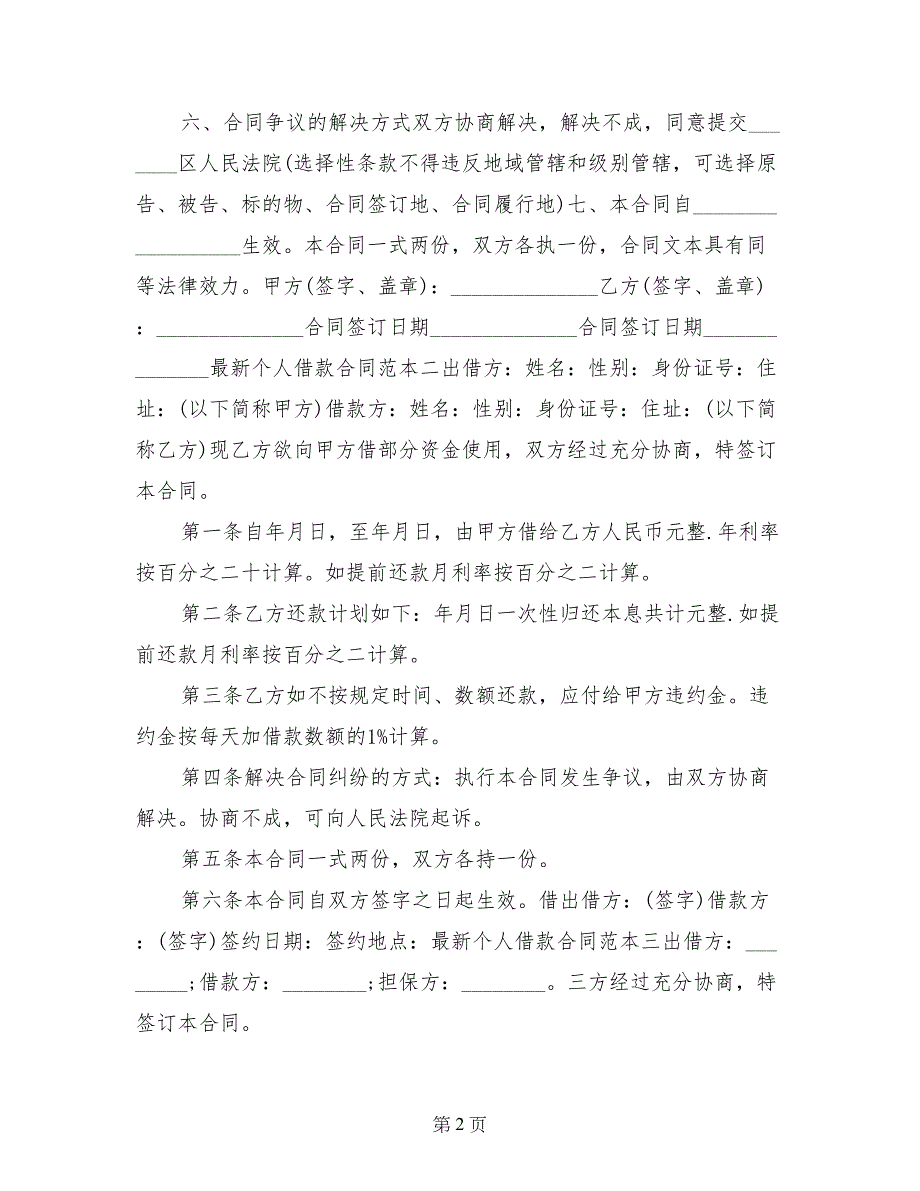 六、合同争议的解决方式双方协商解决，解决不成，同意提交___
____区人民法院(选择性条款不得违反地域管辖和级别管辖，可选择原
告、被告、标的物、合同签订地、合同履行地)七、本合同自________
__________生效。本合同一式两份，双方各执一份，合同文本具有同
等法律效力。甲方(签字、盖章)：______________乙方(签字、盖章)
：______________合同签订日期______________合同签订日期_______
_______最新个人借款合同范本二出借方：姓名：性别：身份证号：住
址：(以下简称甲方)借款方：姓名：性别：身份证号：住址：(以下简
称乙方)现乙方欲向甲方借部分资金使用，双方经过充分协商，特签订
本合同。
第一条自年月日，至年月日，由甲方借给乙方人民币元整.年利率
按百分之二十计算。如提前还款月利率按百分之二计算。
第二条乙方还款计划如下：年月日一次性归还本息共计元整.如提
前还款月利率按百分之二计算。
第三条乙方如不按规定时间、数额还款，应付给甲方违约金。违
约金按每天加借款数额的1%计算。
第四条解决合同纠纷的方式：执行本合同发生争议，由双方协商
解决。协商不成，可向人民法院起诉。
第五条本合同一式两份，双方各持一份。
第六条本合同自双方签字之日起生效。借出借方：(签字)借款方
：(签字)签约日期：签约地点：最新个人借款合同范本三出借方：___
_____;借款方：________;担保方：________。三方经过充分协商，特
签订本合同。
第 2 页